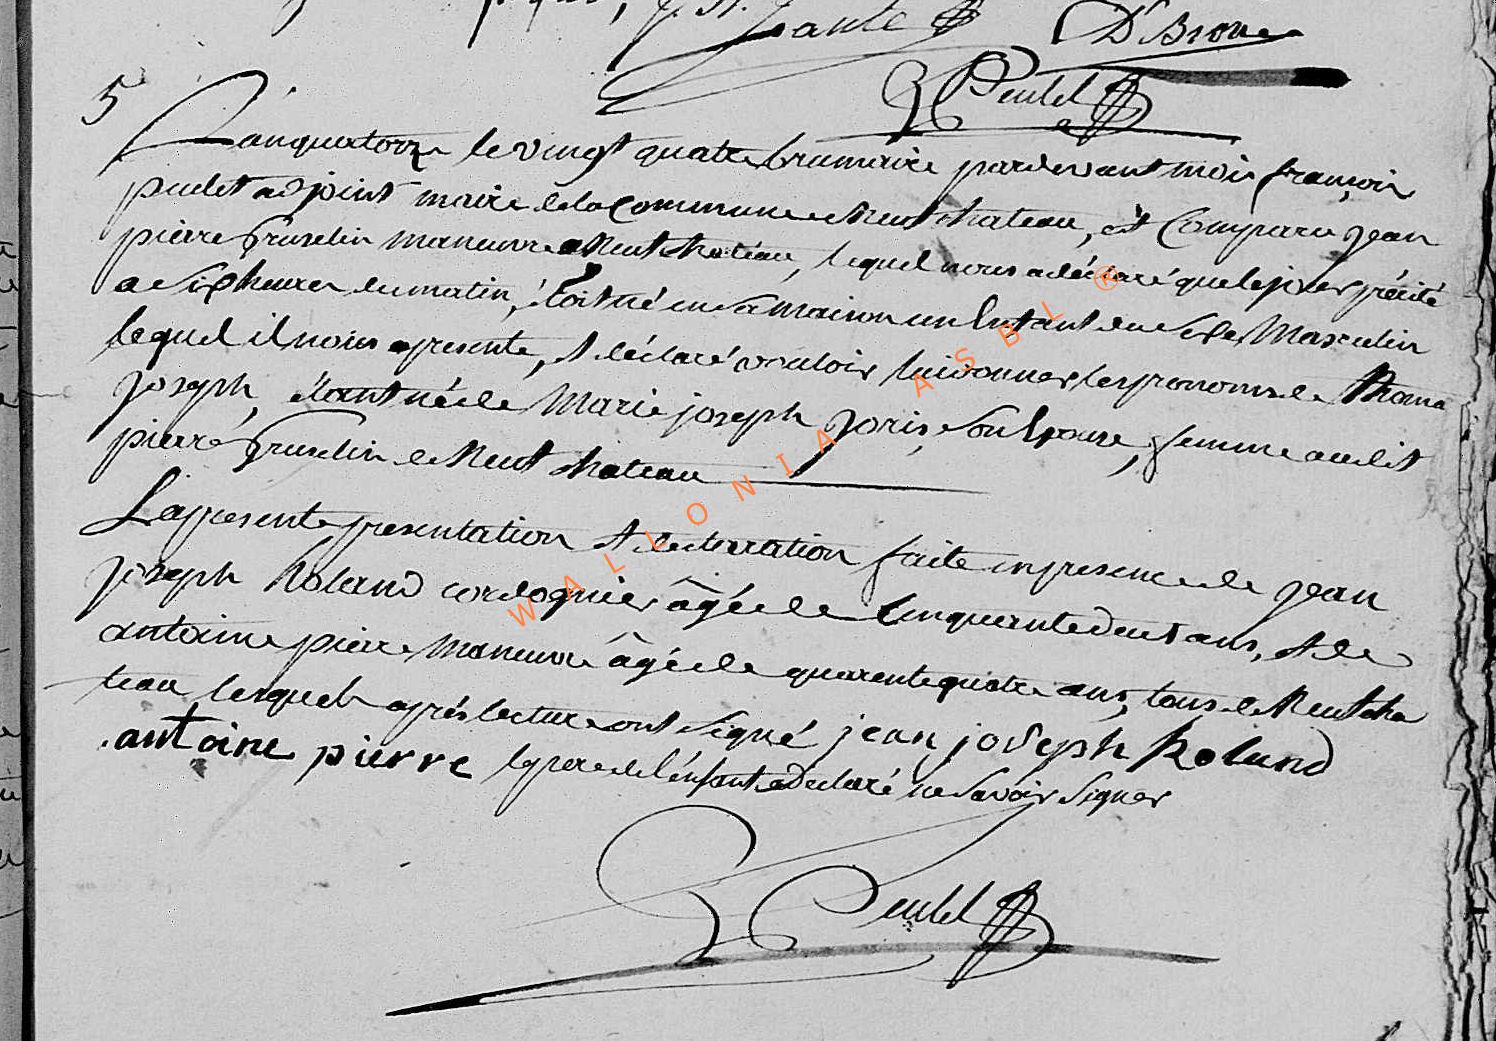 J. H. Zante D' Broue
Peulet
5
L'an quatorze le vingt quatre brumaire pardevant moi françois
peulet adjoint maire de la commune de Neufchateau, est comparu jean
pierre gruselin manuvre a Neufchateau, lequel nous a déclaré que le jour précité
a six heures du matin, étoit né en sa maison un Enfant du sexe Masculin
lequel il nous a presenté, et déclaré vouloir lui donner les pronoms de Thoma
joseph, étant né de Marie joseph joris, son Epouse, femme audit
pierre gruselin de Neufchateau
La presente presentation et declaration faite en presence de jean
joseph Roland cordognier âgé de Cinquante deux ans, et de
antoine pierre manuvre âgé de quarente quatre ans, tous de Neufcha
teau lesquels après lecture ont signé jean joseph Roland
antoine pierre le pere de l'enfant a declaré ne savoir signer
Peulet
WALLONIA ASBL ®